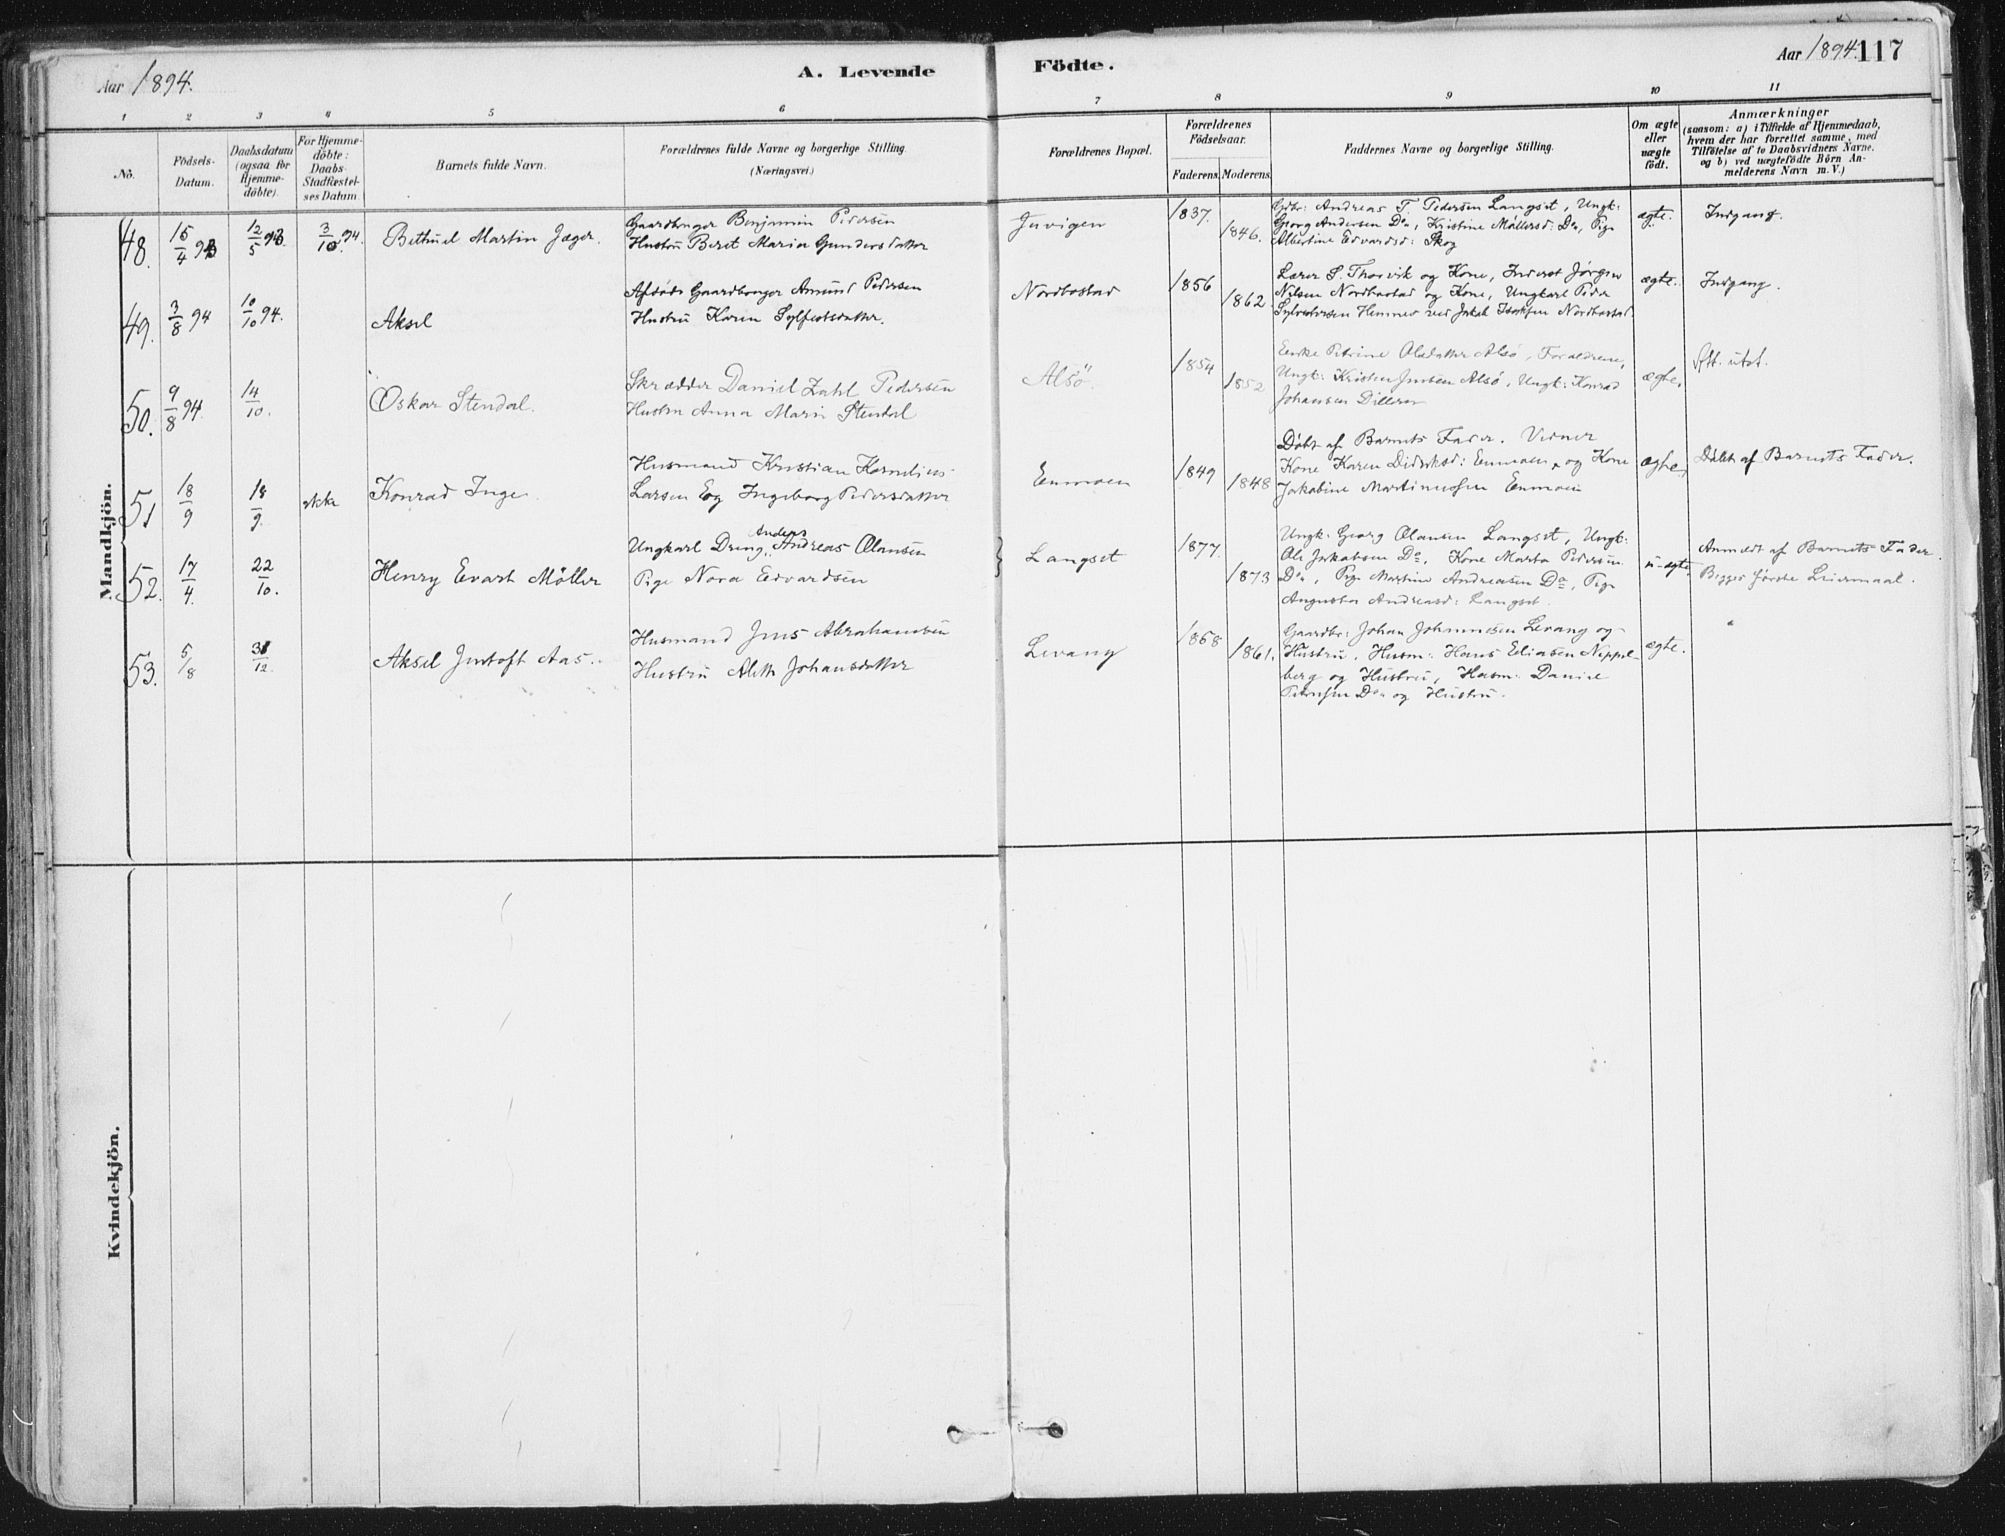 Aar 1894.
A. Levende
Födte.
Aar 1894.
117
1 2 3 4 5 6 7 8 9 10 11
No.
Födsels-
Datum.
Daabsdatum
(ogsaa for
Hjemme-
döbte).
For Hjemme-
döbte:
Daabs-
Stadfæstel-
ses Datum
Barnets fulde Navn.
Forældrenes fulde Navne og borgerlige Stilling
(Næringsvei.)
Forældrenes Bopæl.
Forældrenes
Födselsaar.
Faderens.
Moderens.
Faddernes Navne og borgerlige Stilling.
Om ægte
eller
uægte
födt.
Anmærkninger
(saasom: a) i Tilfælde af Hjemmedaab,
hvem der har forrettet samme, med
Tilföielse af to Daabsvidners Navne.
og b) ved uægtefödte Börn An-
melderens Navn m. V.)
Mandkjön.
48.
15/4 93
12/5 93
3/10 94.
Bethuel Martin Jæger.
Gaardbruger Benjamin Pedersen
Hustru Beret Maria Gundersdatter
Juvigen
1837.
1846.
Gdbr: Andreas T. Pedersen Langset, Ungk:
Georg Andersen Do, Kristine Møllersd: Do, Pige
Albertine Edvardsd: Skog
ægte.
Indgang.
49.
3/8 94
10/10 94.
Aksel
Afdøde Gaardbruger Amund Pedersen
Hustru Karen Sylfestsdatter.
Nordbostad
1856
1862
Lærer S. Thorvik og Kone, Inderst Jørgen
Nilsen Nordbostad og Kone, Ungkarl Peder
Sylvestersen Hemnes ved Jakob Isaksen Nordbostad.
ægte.
Indgang.
50.
9/8 94.
14/10.
Oskar Stendal.
Skrædder Daniel Zahl Pedersen
Hustru Anna Marie Stendal
Alsö.
1854
1852
Enke Petrine Olsdatter Alsö, Forældrene,
Ungk: Kristen Jensen Alsö, Ungk: Konrad
Johansen Dilleren
ægte.
Att. utst.
51
18/9
18/9.
ikke
Konrad Inge
Husmand Kristian Kornelius
Larsen Eog Ingeborg Pedersdatter
Enmoen
1849
1848
Døbt af Barnets Fader. Vidner
Kone Karen Didriksd: Enmoen, og Kone
Jakobine Martinussen Enmoen
ægte,
Døbt af Barnets Fader.
52.
17/4.
22/10.
Henry Evart Möller
Anders
Ungkarl Dreng, Andreas Olausen
Pige Nora Edvardsen
Langset
1877.
1873
Ungk: Georg Olausen Langset, Ungk:
Ole Jakobsen Do, Kone Marta Pedersen
Do, Pige Martine Andreasen Do, Pige
Augusta Andreasd: Langset.
u-ægte.
Anmeldt af Barnets Fader.
Begges første Leiermaal.
53.
5/8
31/12.
Aksel Jentoft Aas.
Husmand Jens Abrahamsen
Hustru Aleth Johansdatter
Levang
1868
1861.
Gaardbr: Johan Johannesen Levang og
Hustru, Husm: Hans Eliasen Nippel-
berg og Hustru, Husm: Daniel
Petersen Do og Hustru.
ægte.
"
Kvindekjön.